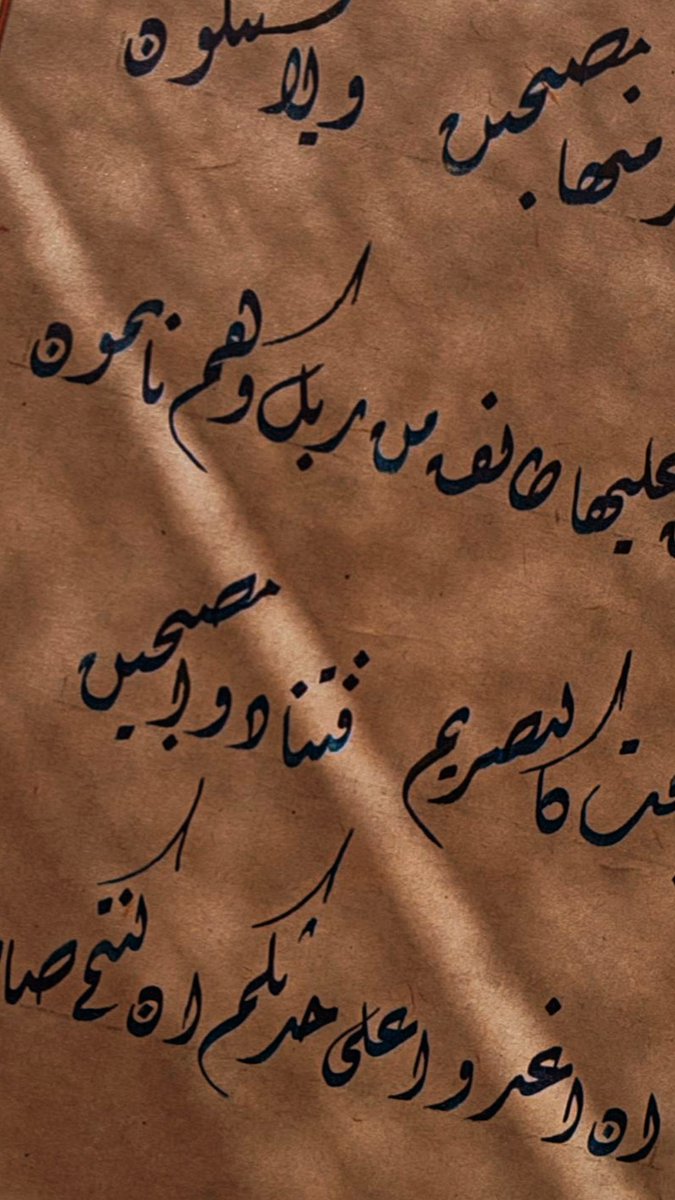 منها مصبحين ولا
عليها طائف من ربك وهم نايمون
كالصريم فتنادوا مصبحين
ان اغدوا على حرثكم ان كنتم